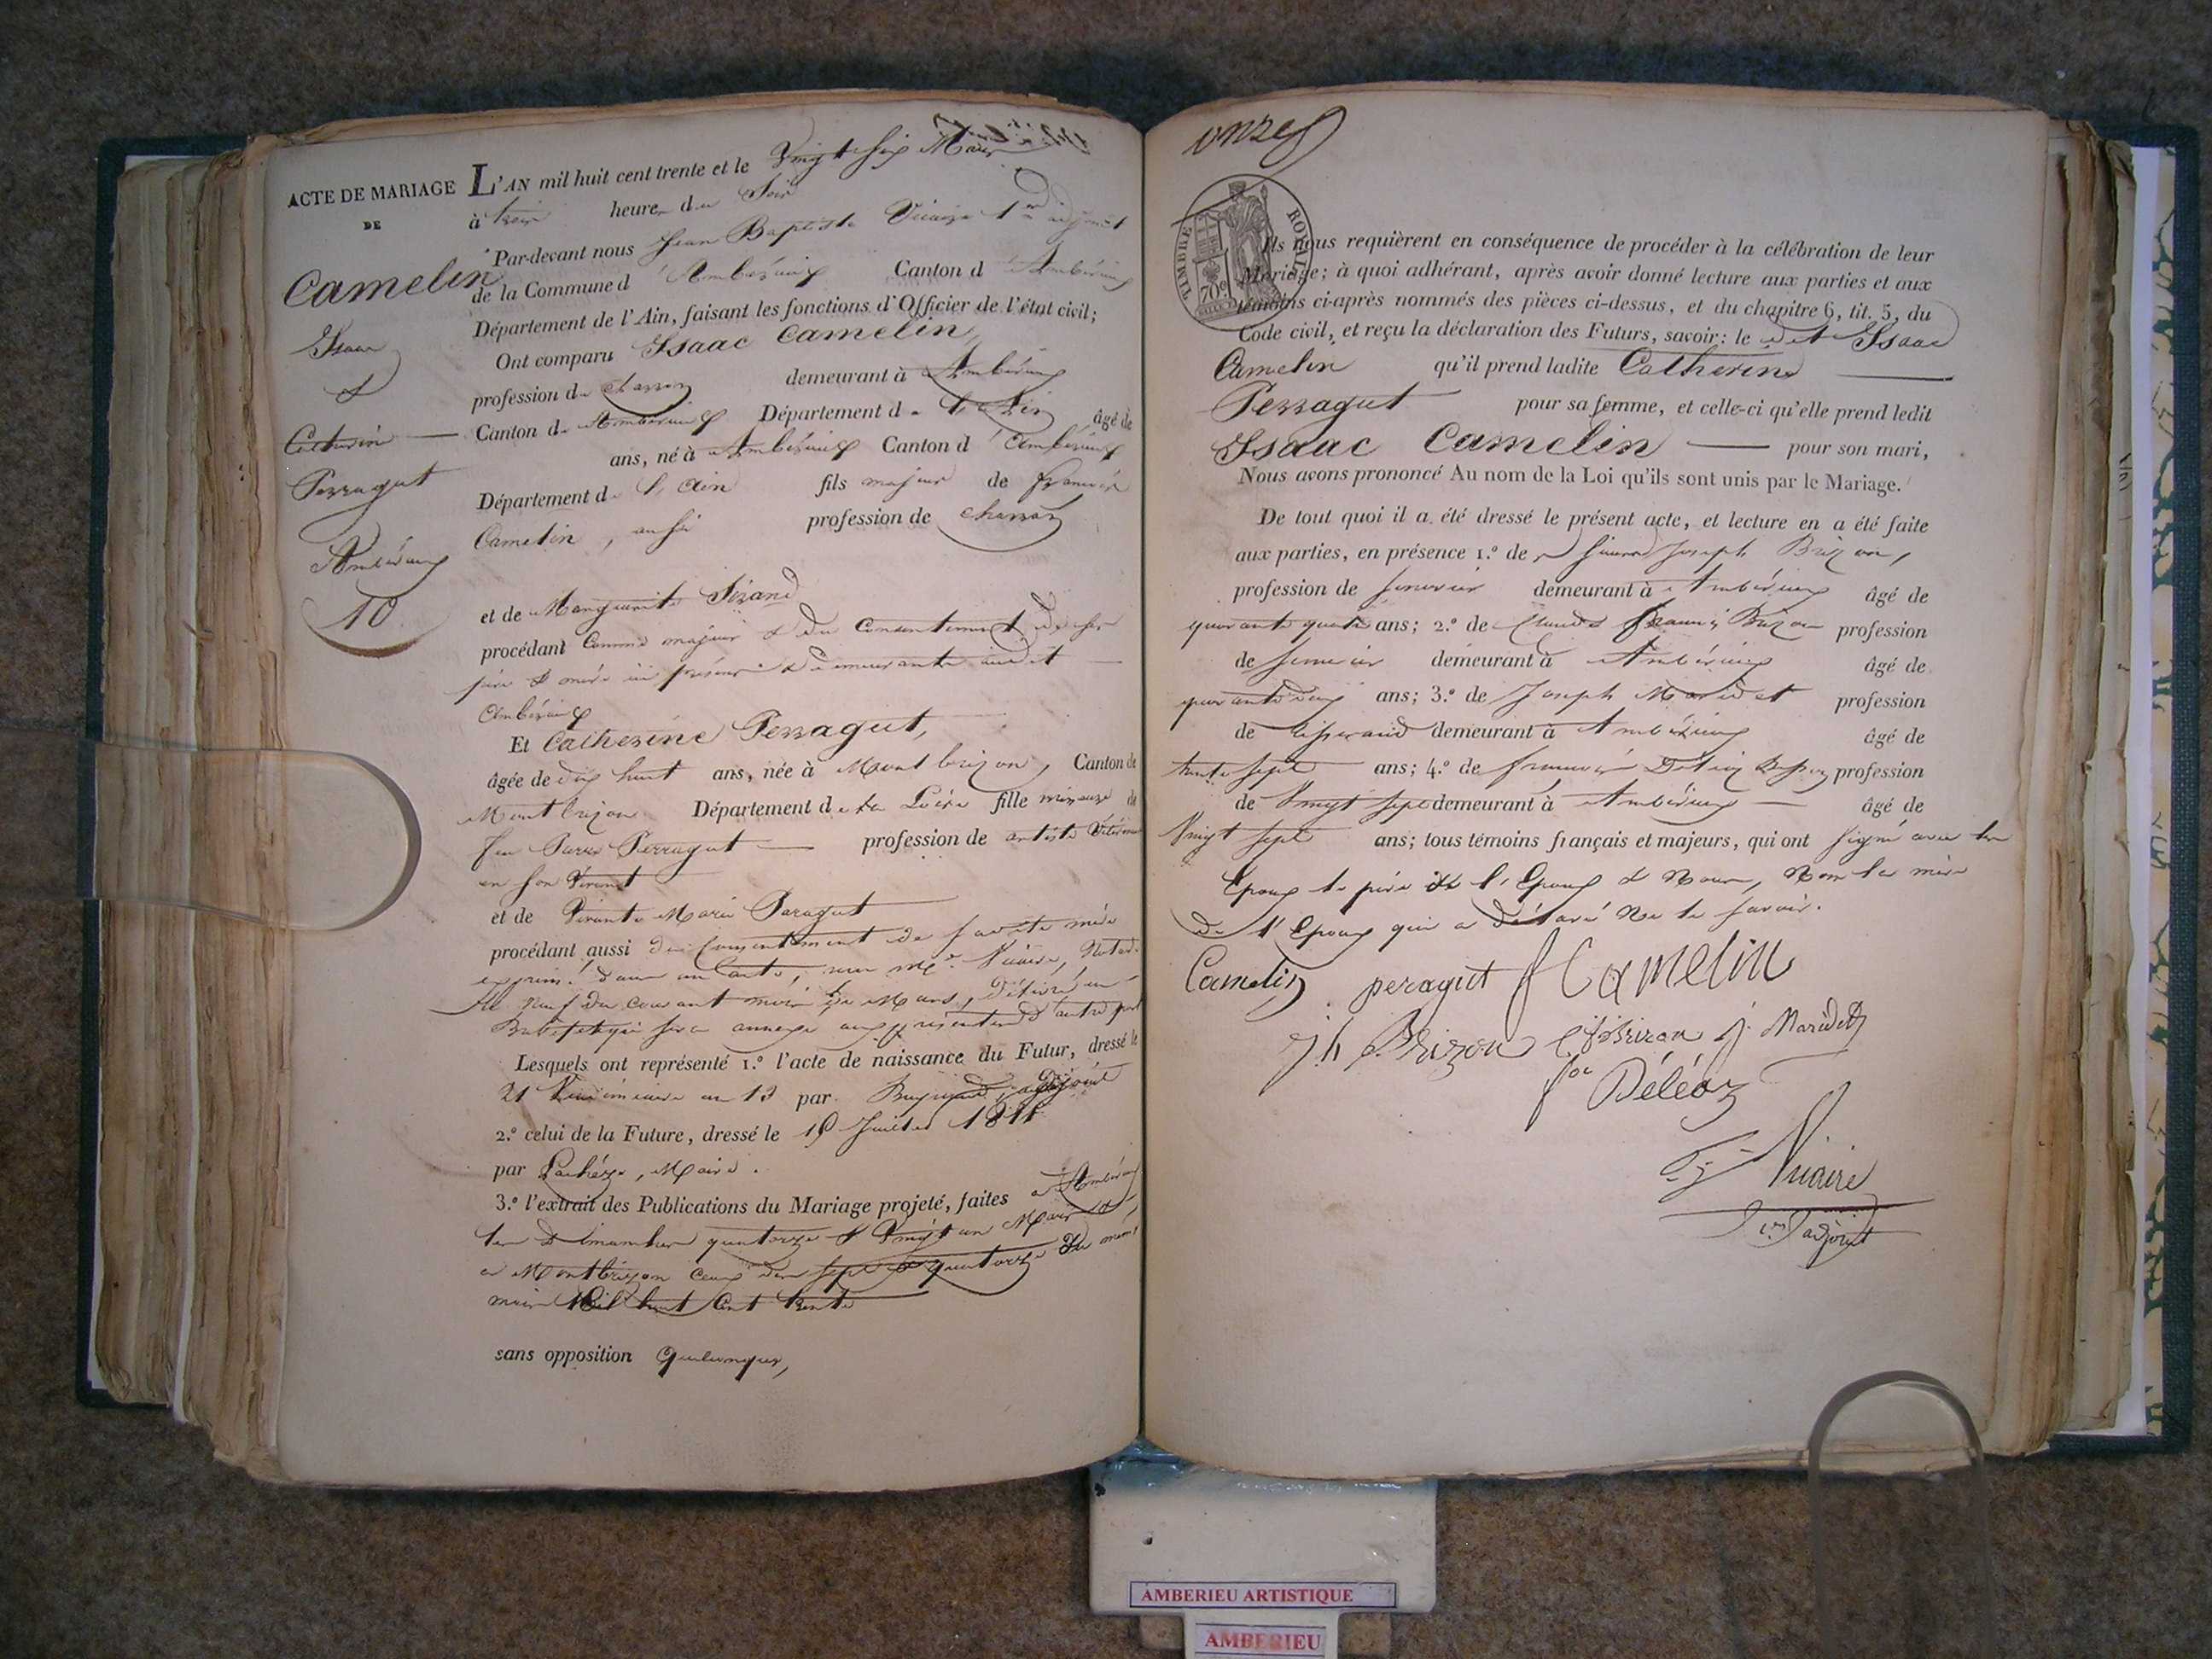 ACTE DE MARIAGE
DE
Camelin
Isaac
&
Catherine
Perragut
Ambérieux
10
L'AN mil huit cent trente et le Vingt six Mars
à trois heures du Soir
Par-devant nous Jean Baptiste Vicaire 1er adjoint
de la Commune d'Ambérieux Canton d'Ambérieux
Département de l'Ain, faisant les fonctions d'Officier de l'état civil;
Ont comparu Isaac Camelin,
profession de charron demeurant à Ambérieux
Canton de Ambérieux Département de l'Ain âgé de
ans, né à Ambérieux Canton d'Ambérieux
Département de l'Ain fils majeur de François
Camelin, aussi profession de charron
et de Marguerite Sirand
procédant comme majeur & du consentement de ses
père & mère ici présens & demeurants audit
Ambérieux
Et Catherine Perragut,
âgée de dix huit ans, née à Montbrizon, Canton de
Montbrizon Département de la Loire fille mineure de
feu Pierre Perragut profession de artiste Vétérinaire
en son vivant
et de vivante Marie Paragut
procédant aussi du consentement de sa dite mère
exprimé dans un acte, reçu Me Vicaire, Notaire
le neuf du courant mois de Mars, délivré en
Brevet qui sera annexé aux présentes d'autre part
Lesquels ont représenté 1.º l'acte de naissance du Futur, dressé le
21 Vendémiaire an 13 par adjoint
2.º celui de la Future, dressé le 19 Juillet 1811
par Lachèze, Maire.
3.º l'extrait des Publications du Mariage projeté, faites à Ambérieux
les Dimanches quatorze & Vingt un Mars &
à Montbrizon ceux des sept & quatorze du même
mois Mil huit Cent trente
sans opposition Quelconque,
onze
TIMBRE ROYAL
70c
Ils nous requièrent en conséquence de procéder à la célébration de leur
Mariage; à quoi adhérant, après avoir donné lecture aux parties et aux
témoins ci-après nommés des pièces ci-dessus, et du chapitre 6, tit. 5, du
Code civil, et reçu la déclaration des Futurs, savoir: le dit Isaac
Camelin qu'il prend ladite Catherine
Perragut pour sa femme, et celle-ci qu'elle prend ledit
Isaac Camelin pour son mari,
Nous avons prononcé Au nom de la Loi qu'ils sont unis par le Mariage.
De tout quoi il a été dressé le présent acte, et lecture en a été faite
aux parties, en présence 1.º de Joseph Brizon,
profession de demeurant à Ambérieux âgé de
quarante quatre ans; 2.º de Claude François Brizon profession
de demeurant à Ambérieux âgé de
quarante deux ans; 3.º de Joseph Maridet profession
de tisserand demeurant à Ambérieux âgé de
trente sept ans; 4.º de François Déléaz profession
de Vingt sept demeurant à Ambérieux âgé de
Vingt sept ans; tous témoins français et majeurs, qui ont signé avec les
Epoux le père de l'Epoux & Nous, Non la mère
de l'Epoux qui a déclaré Ne le savoir.
Camelin peragut f Camelin
jh Brizon Brizon j. Maridet
foi Déléaz
Vicaire
1er adjoint
AMBERIEU ARTISTIQUE
AMBERIEU